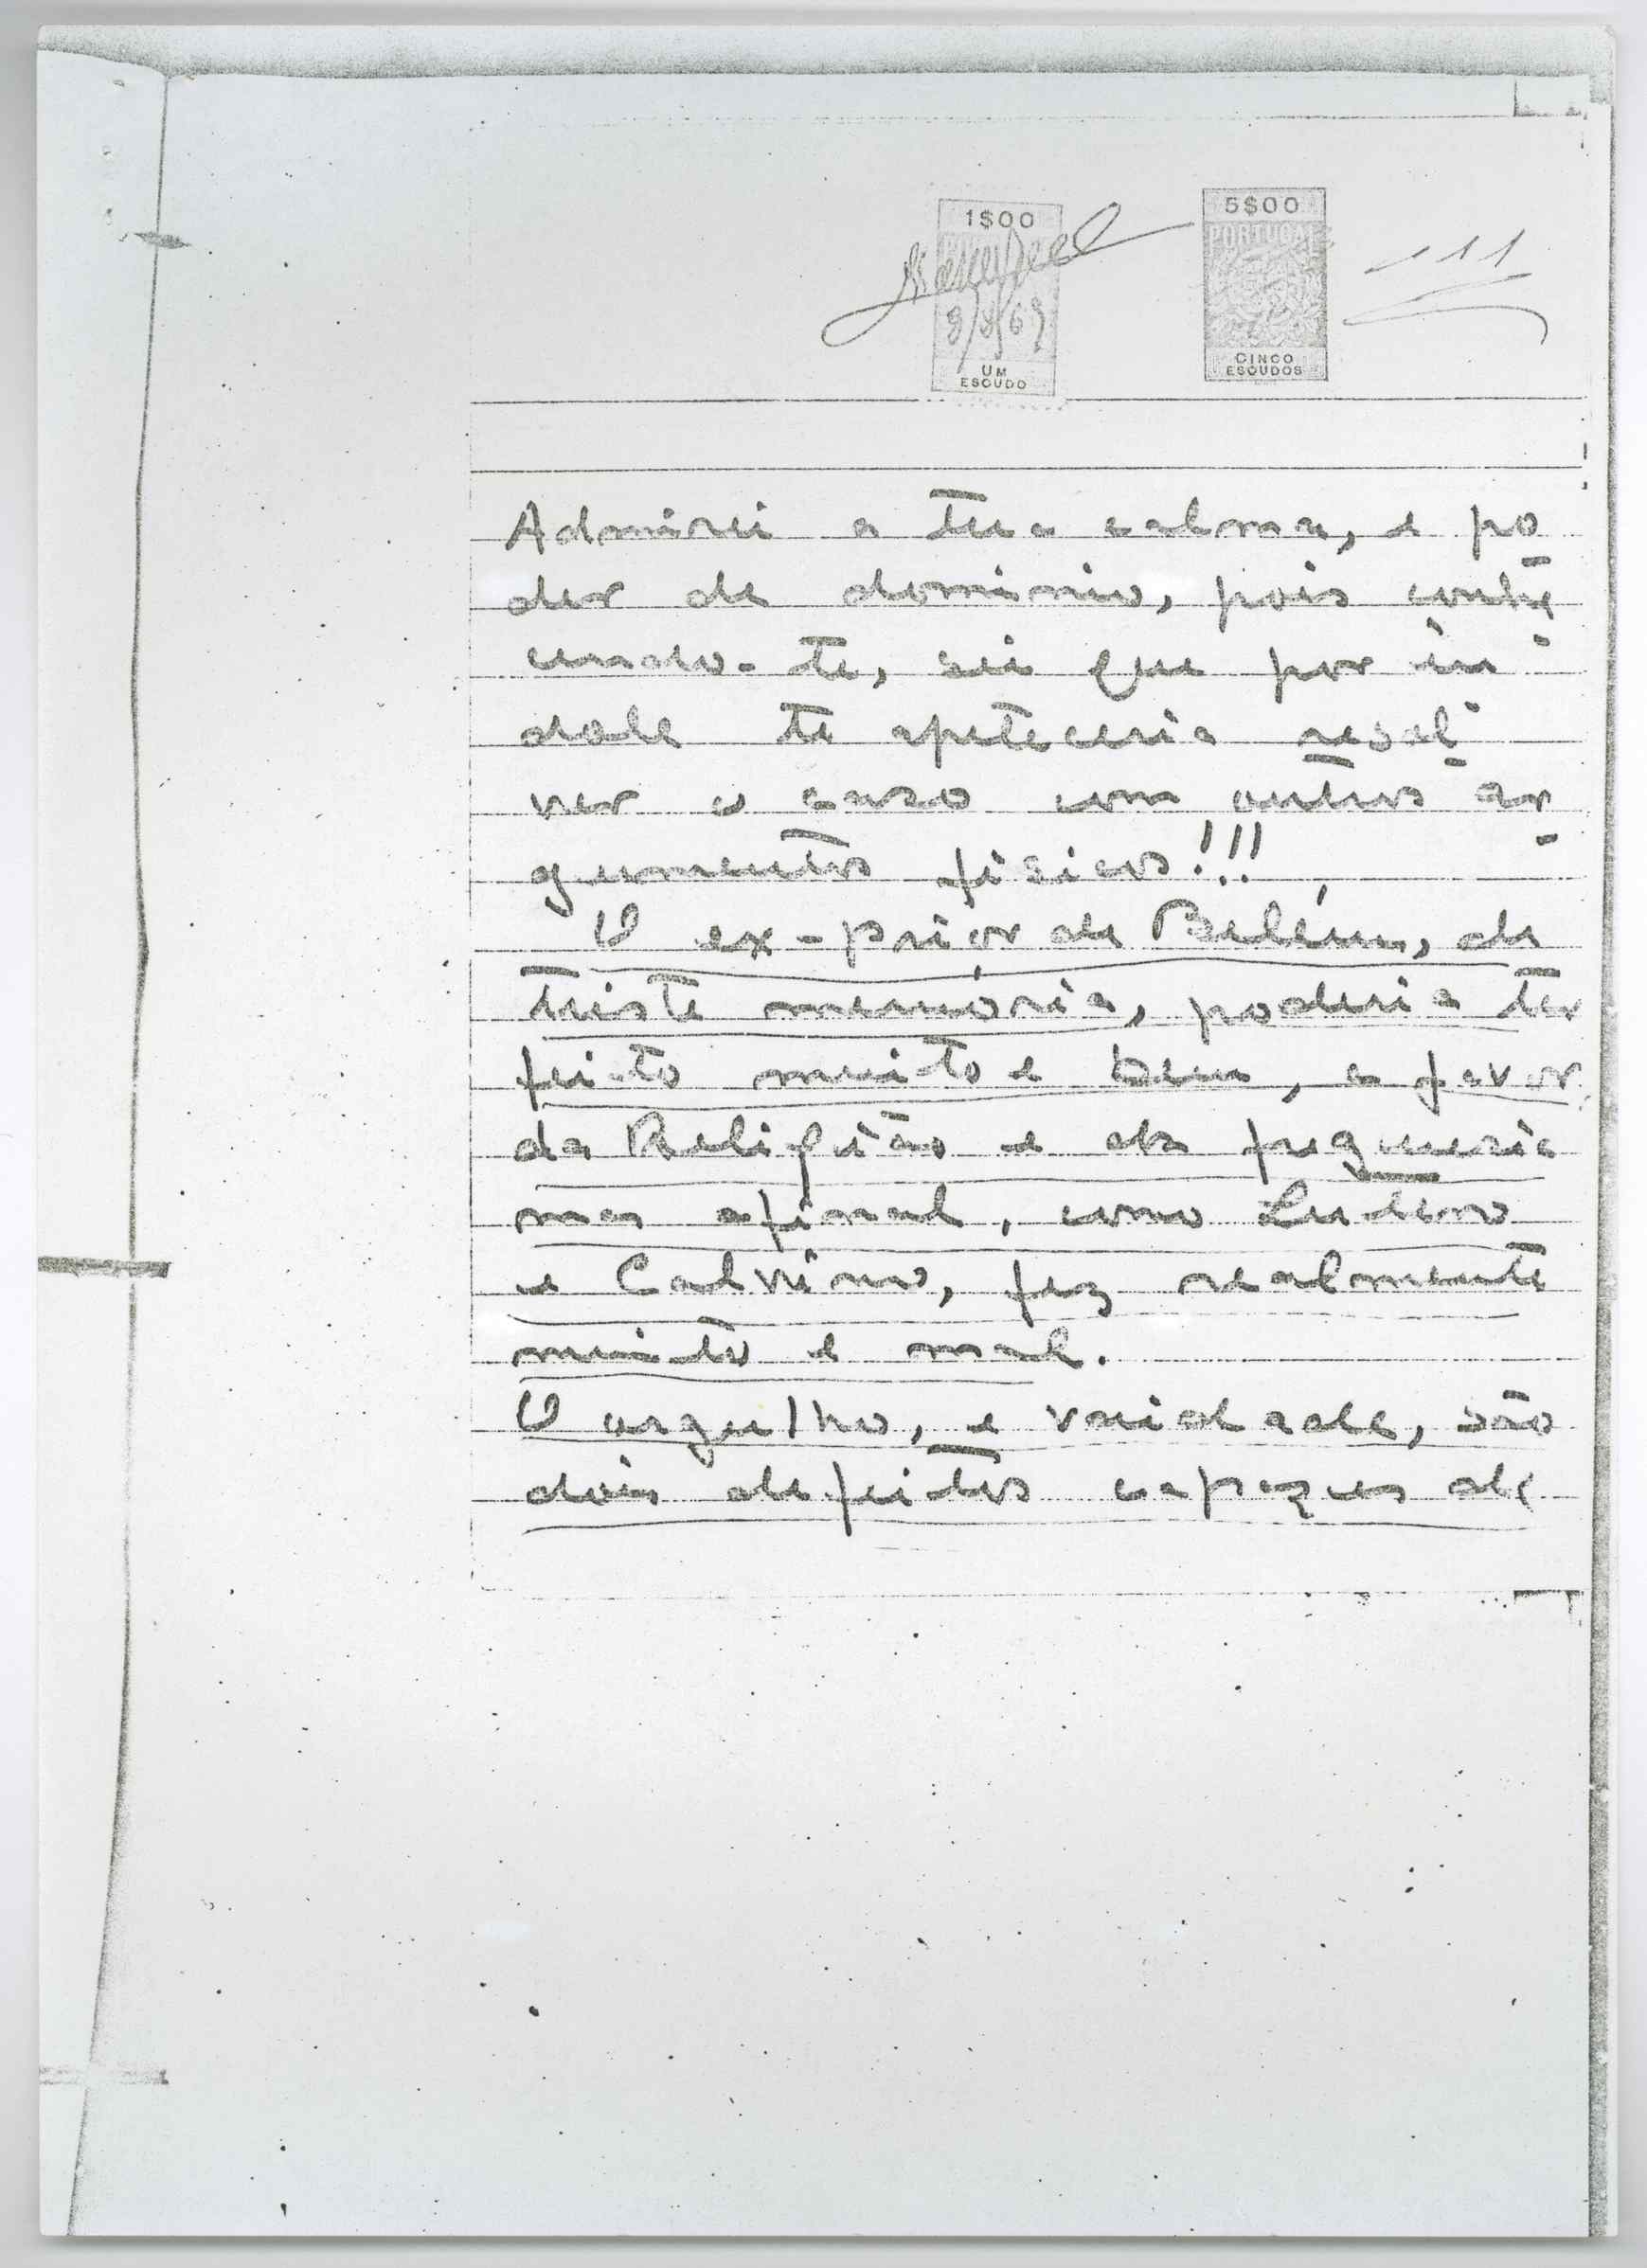 1$00
5$00
PORTUGAL
9/9/69
UM
ESCUDO
CINCO
ESCUDOS
111
Admirei a tua calma, e po
der de dominio, pois conhe
cendo-te, sei que por ín
dole te apeteceria resol
ver o caso com outros ar
gumentos fisicos!!!
O ex-prior de Belém, de
triste memória, poderia ter
feito muito e bem, a favor
da Religião e da freguesia
mas afinal, como Lutero
e Calvino, fez realmente
muito e mal.
O orgulho, e vaidade, são
dois defeitos capazes de